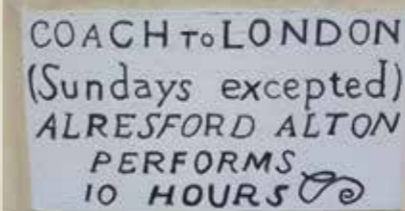 COACH TO LONDON
(Sundays excepted)
ALRESFORD ALTON
PERFORMS
10 HOURS